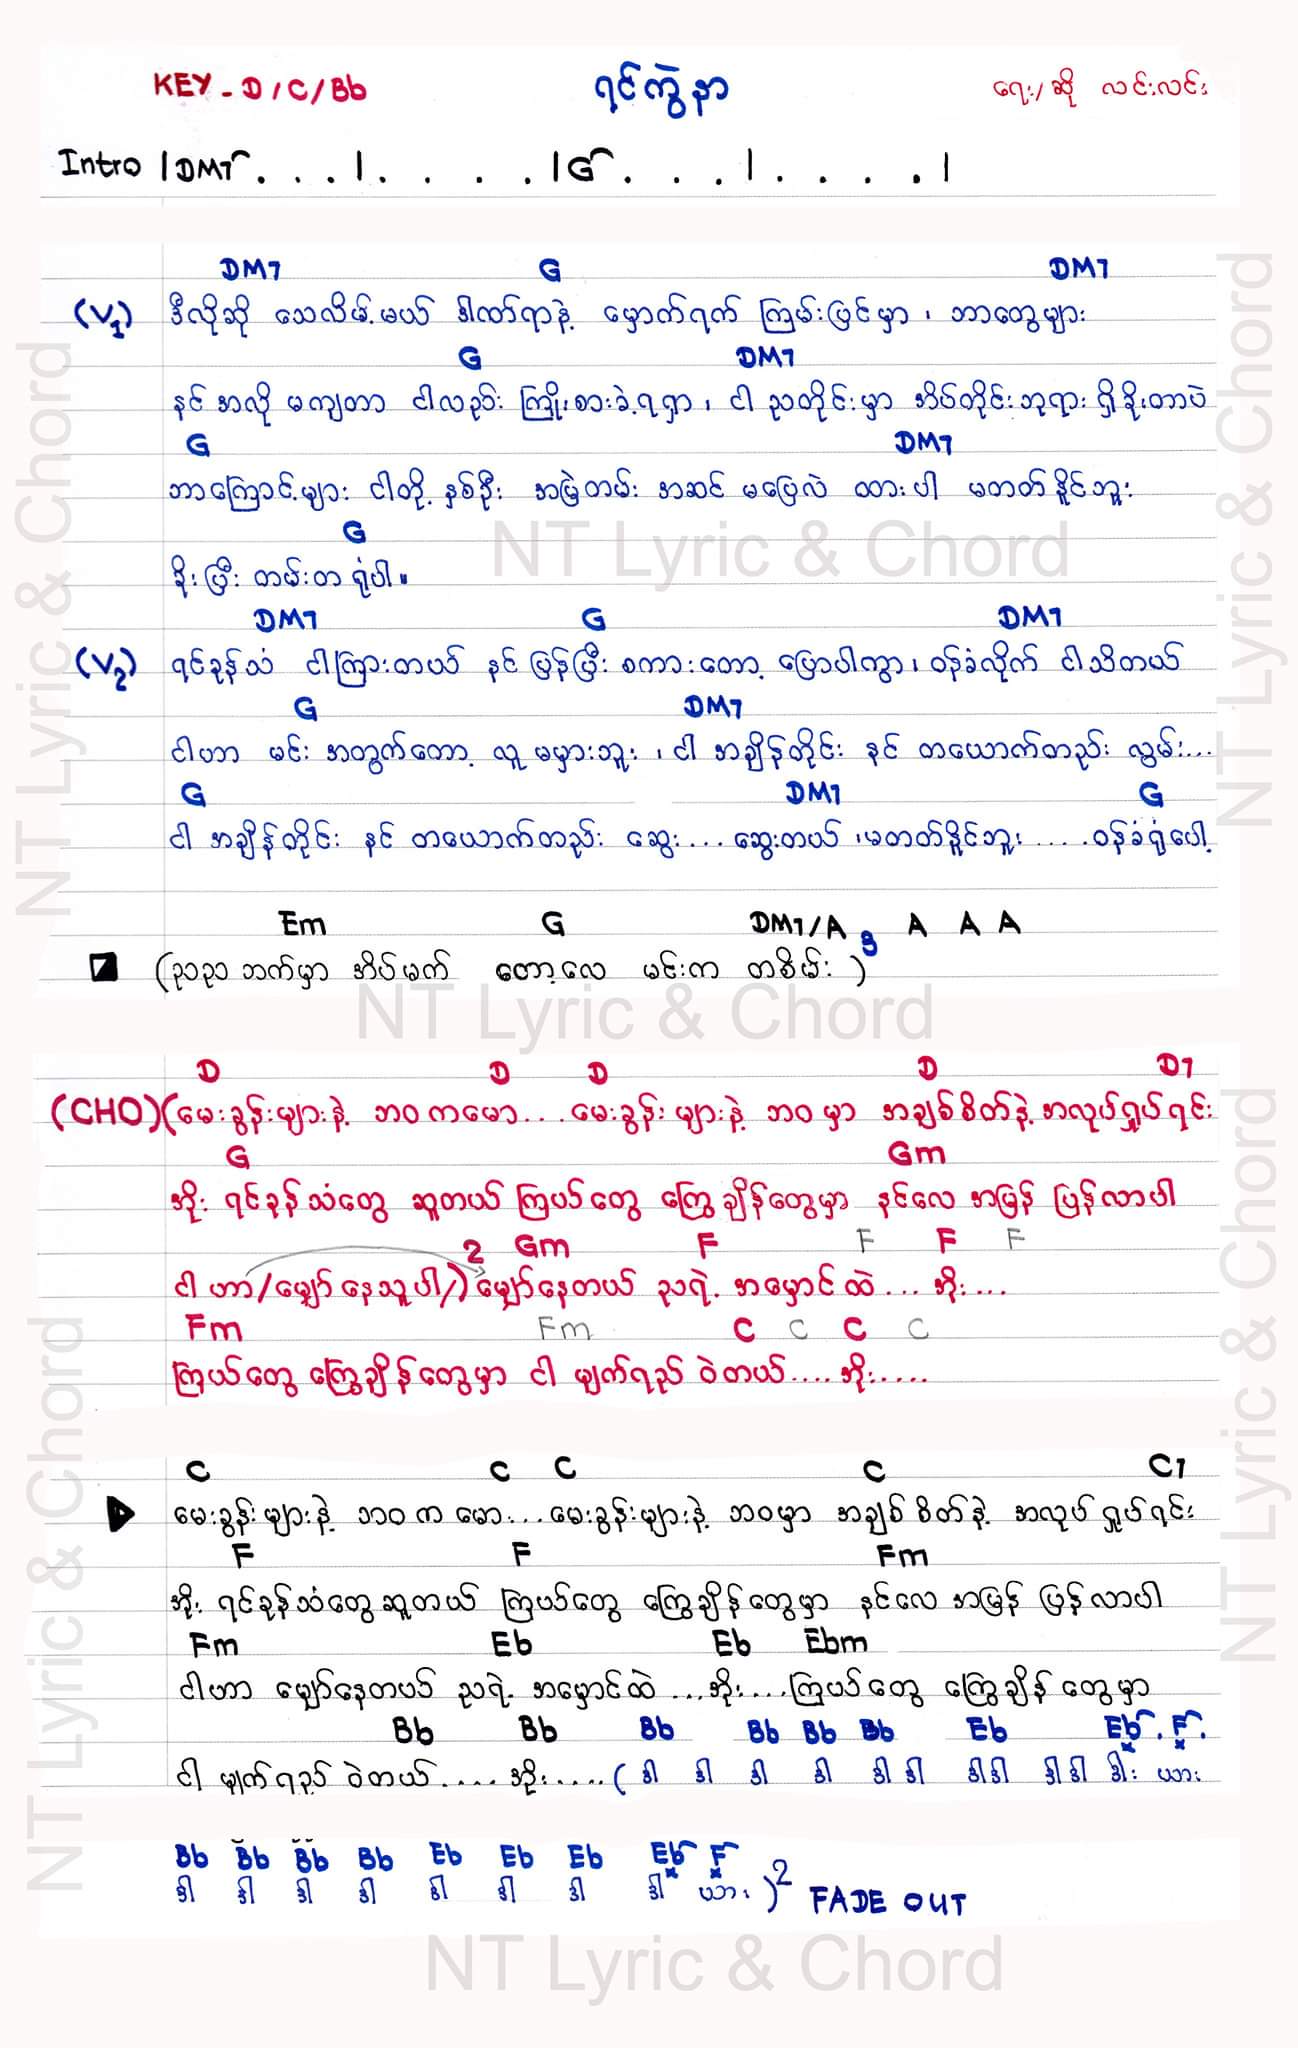 KEY - D / C / Bb
ရင်ကွဲနာ
ရေး/ဆို လင်းလင်း
Intro | DM7 . . . | . . . . | G . . . | . . . . |
DM7 G DM7
(V1) ဒီလိုဆို သေလိမ့်မယ် ဒဏ်ရာနဲ့ မှောက်ရက် ကြမ်းပြင်မှာ ၊ ဘာတွေများ
G DM7
နင် အလို မကျတာ ငါလည်း ကြိုးစားခဲ့ရရှာ ၊ ငါ ညတိုင်းမှာ အိပ်တိုင်းဘုရား ရှိခိုးတာပဲ
G DM7
ဘာကြောင့်များ ငါတို့ နှစ်ဦး အမြဲတမ်း အဆင် မပြေလဲ ထားပါ မတတ်နိုင်ဘူး
G
ခိုးပြီး တမ်းတ ရုံပါ။
DM7 G DM7
(V2) ရင်ခုန်သံ ငါကြားတယ် နင် ပြန်ပြီး စကားတော့ ပြောပါကွာ ၊ ဝန်ခံလိုက် ငါသိတယ်
G DM7
ငါဟာ မင်း အတွက်တော့ လူ မမှားဘူး ၊ ငါ အချိန်တိုင်း နင် တယောက်တည်း လွမ်း...
G DM7 G
ငါ အချိန်တိုင်း နင် တယောက်တည်း ဆွေး...ဆွေးတယ် ၊မတတ်နိုင်ဘူး .....ဝန်ခံရုံပေါ့
Em G DM7/A A A A
(ညည ဘက်မှာ အိပ်မက် တော့လေ မင်းက တစိမ်း )3
D D D D D7
(CHO)(မေးခွန်းများနဲ့ ဘဝ ကမော... မေးခွန်း များနဲ့ ဘဝ မှာ အချစ်စိတ်နဲ့ အလုပ်ရှုပ်ရင်း
G Gm
အိုး ရင်ခုန်သံတွေ ဆူတယ် ကြယ်တွေ ကြွေချိန်တွေမှာ နင်လေ အမြန် ပြန်လာပါ
2 Gm F F F F
ငါ ဟာ/မျှော်နေသူပါ/)မျှော်နေတယ် ညရဲ့ အမှောင်ထဲ ... အိုး...
Fm Fm C C C C
ကြယ်တွေ ကြွေချိန်တွေမှာ ငါ မျက်ရည် ဝဲတယ်.... အိုး....
C C C C C7
မေးခွန်းများနဲ့ ဘဝ က မော...မေးခွန်းများနဲ့ ဘဝမှာ အချစ်စိတ်နဲ့ အလုပ်ရှုပ်ရင်း
F F Fm
အိုး ရင်ခုန်သံတွေဆူတယ် ကြယ်တွေ ကြွေချိန်တွေမှာ နင်လေ အမြန် ပြန်လာပါ
Fm Eb Eb Ebm
ငါဟာ မျှော်နေတယ် ညရဲ့ အမှောင်ထဲ ...အိုး....ကြယ်တွေ ကြွေချိန် တွေမှာ
Bb Bb Bb Bb Bb Bb Eb Eb . F .
ငါ မျက်ရည် ဝဲတယ်.... အိုး.....( ဒါ ဒါ ဒါ ဒါ ဒါဒါ ဒါဒါ ဒါဒါ ဒါး ယား
Bb Bb Bb Bb Eb Eb Eb Eb F
ဒါ ဒါ ဒါ ဒါ ဒါ ဒါ ဒါ ဒါ ယား )2 FADE OUT
NT Lyric & Chord
NT Lyric & Chord
NT Lyric & Chord
NT Lyric & Chord
NT Lyric & Chord
NT Lyric & Chord
NT Lyric & Chord